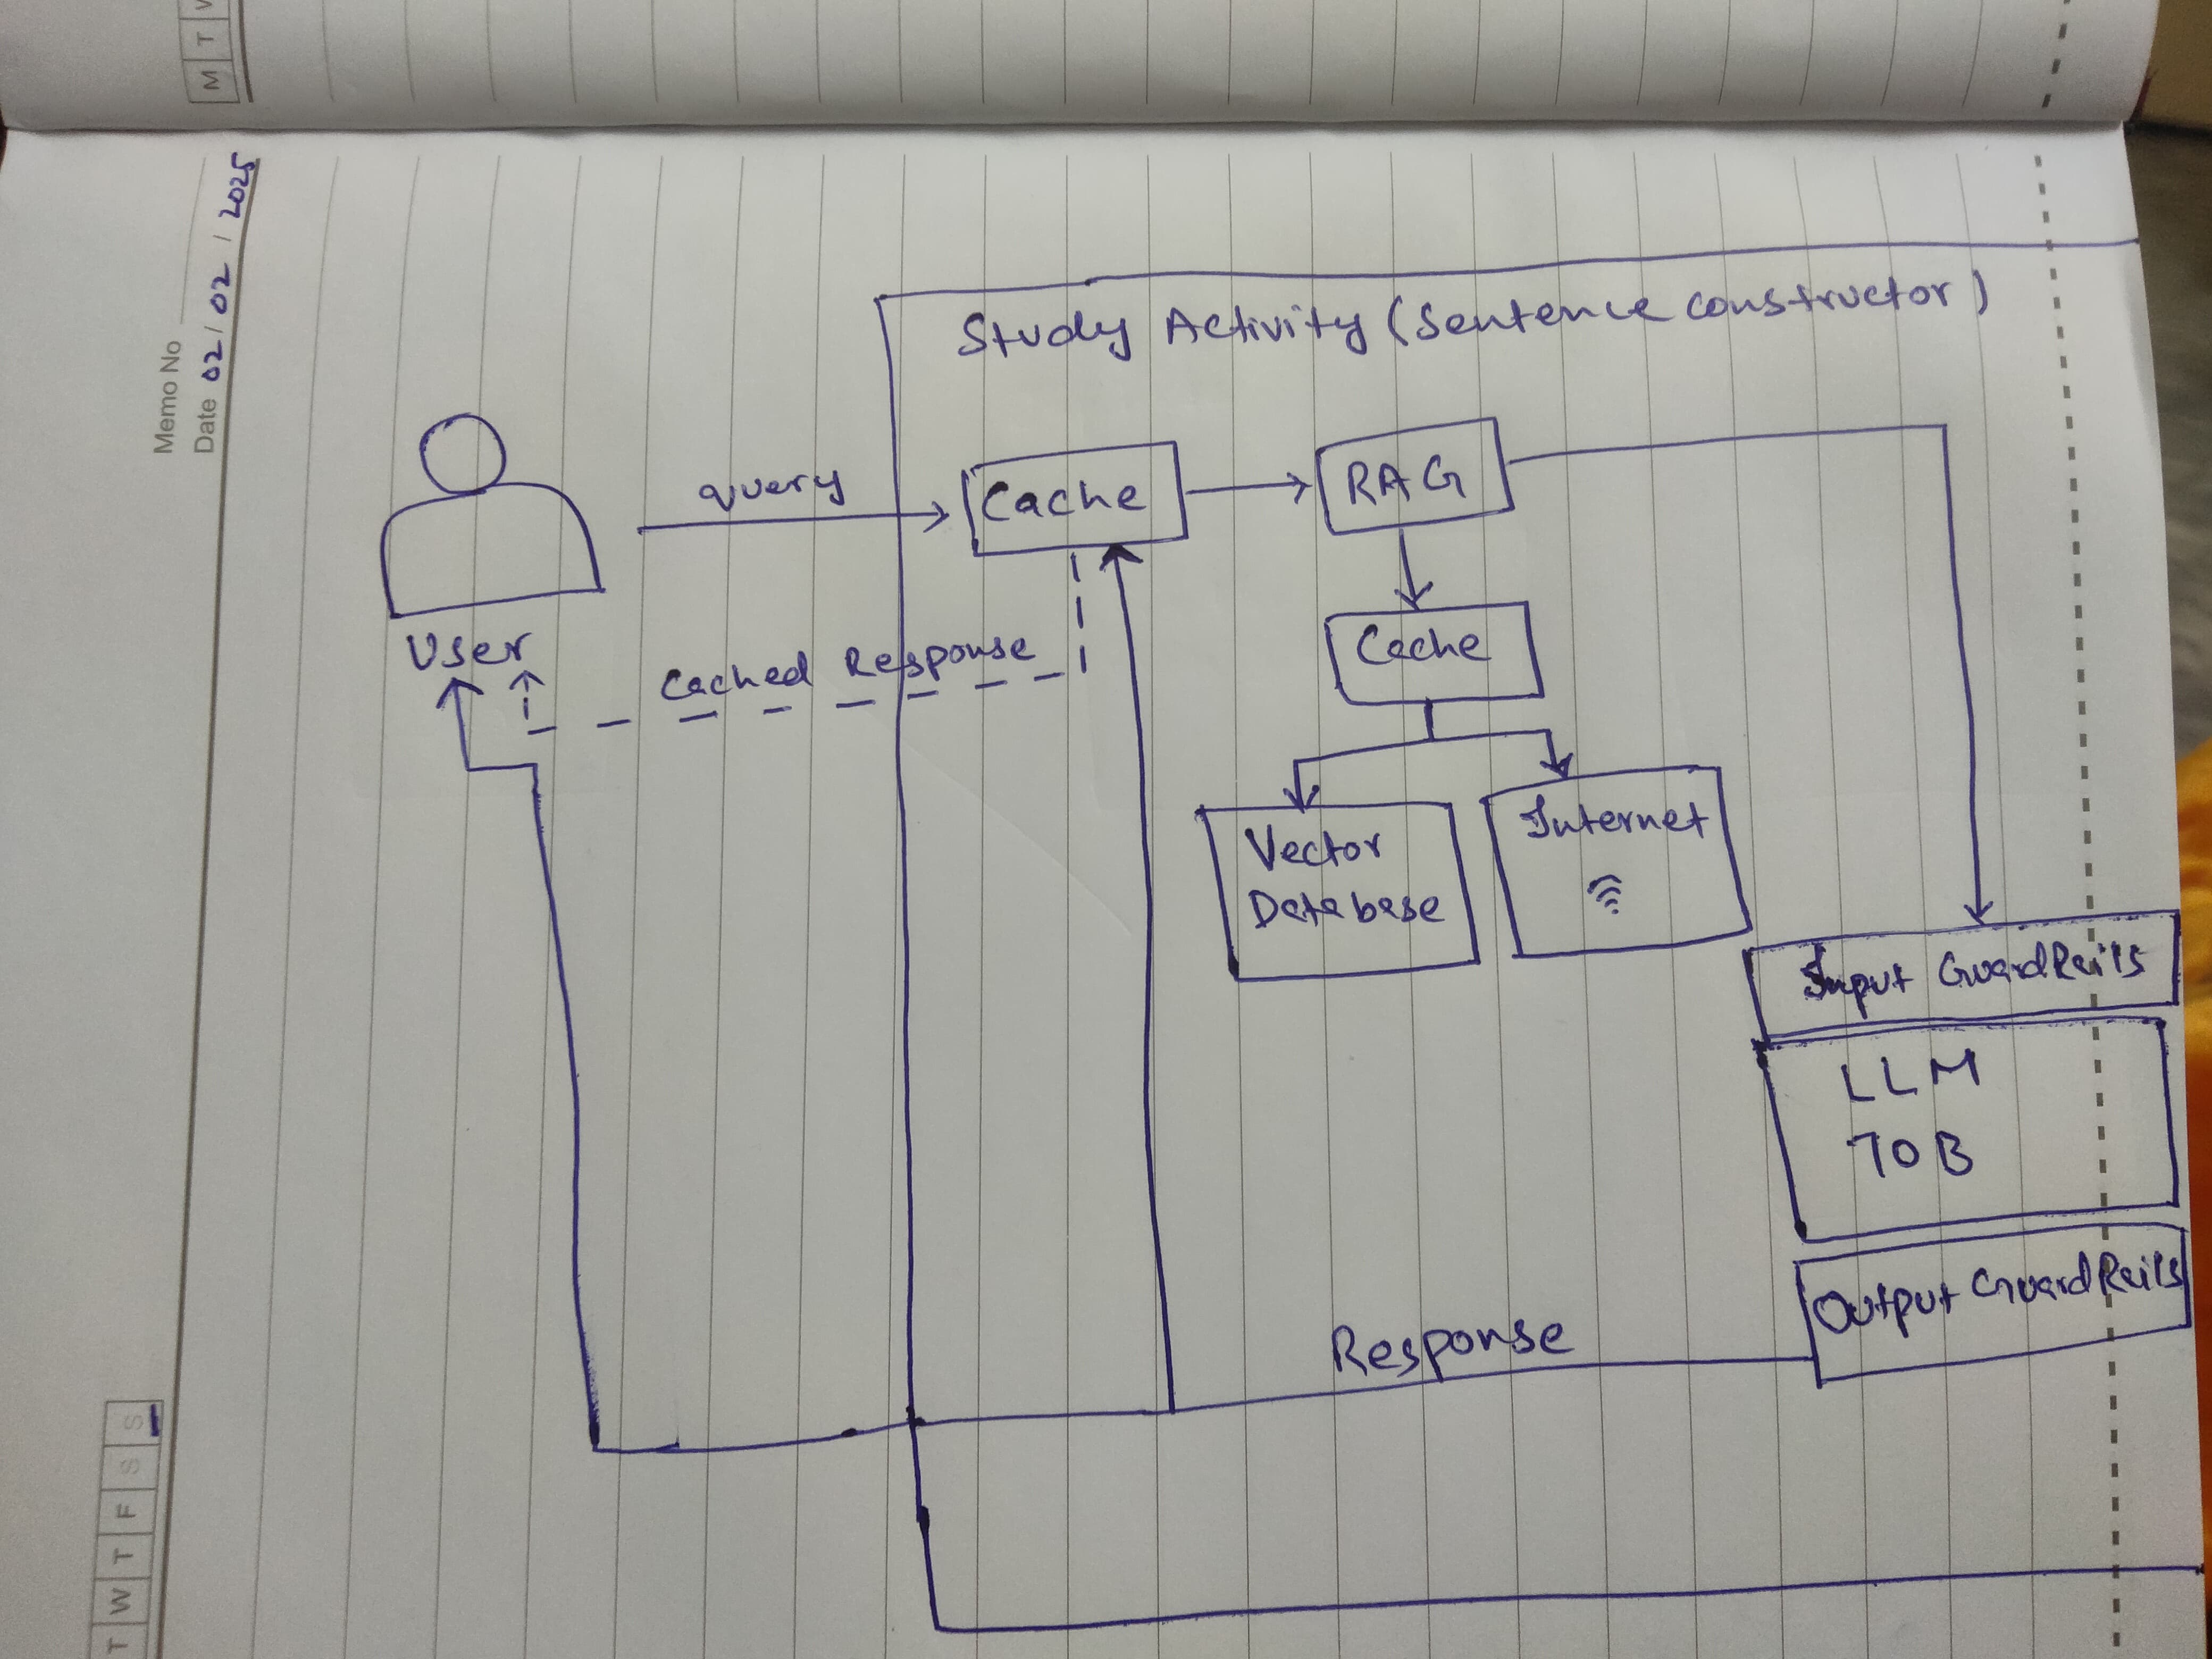 M T
Memo No
Date 02/02/2025
Study Activity (Sentence constructor)
query
Cache
RAG
User
Cached Response
Cache
Vector
Database
Internet
Input GuardRails
LLM
70B
Output GuardRails
Response
T W T F S S